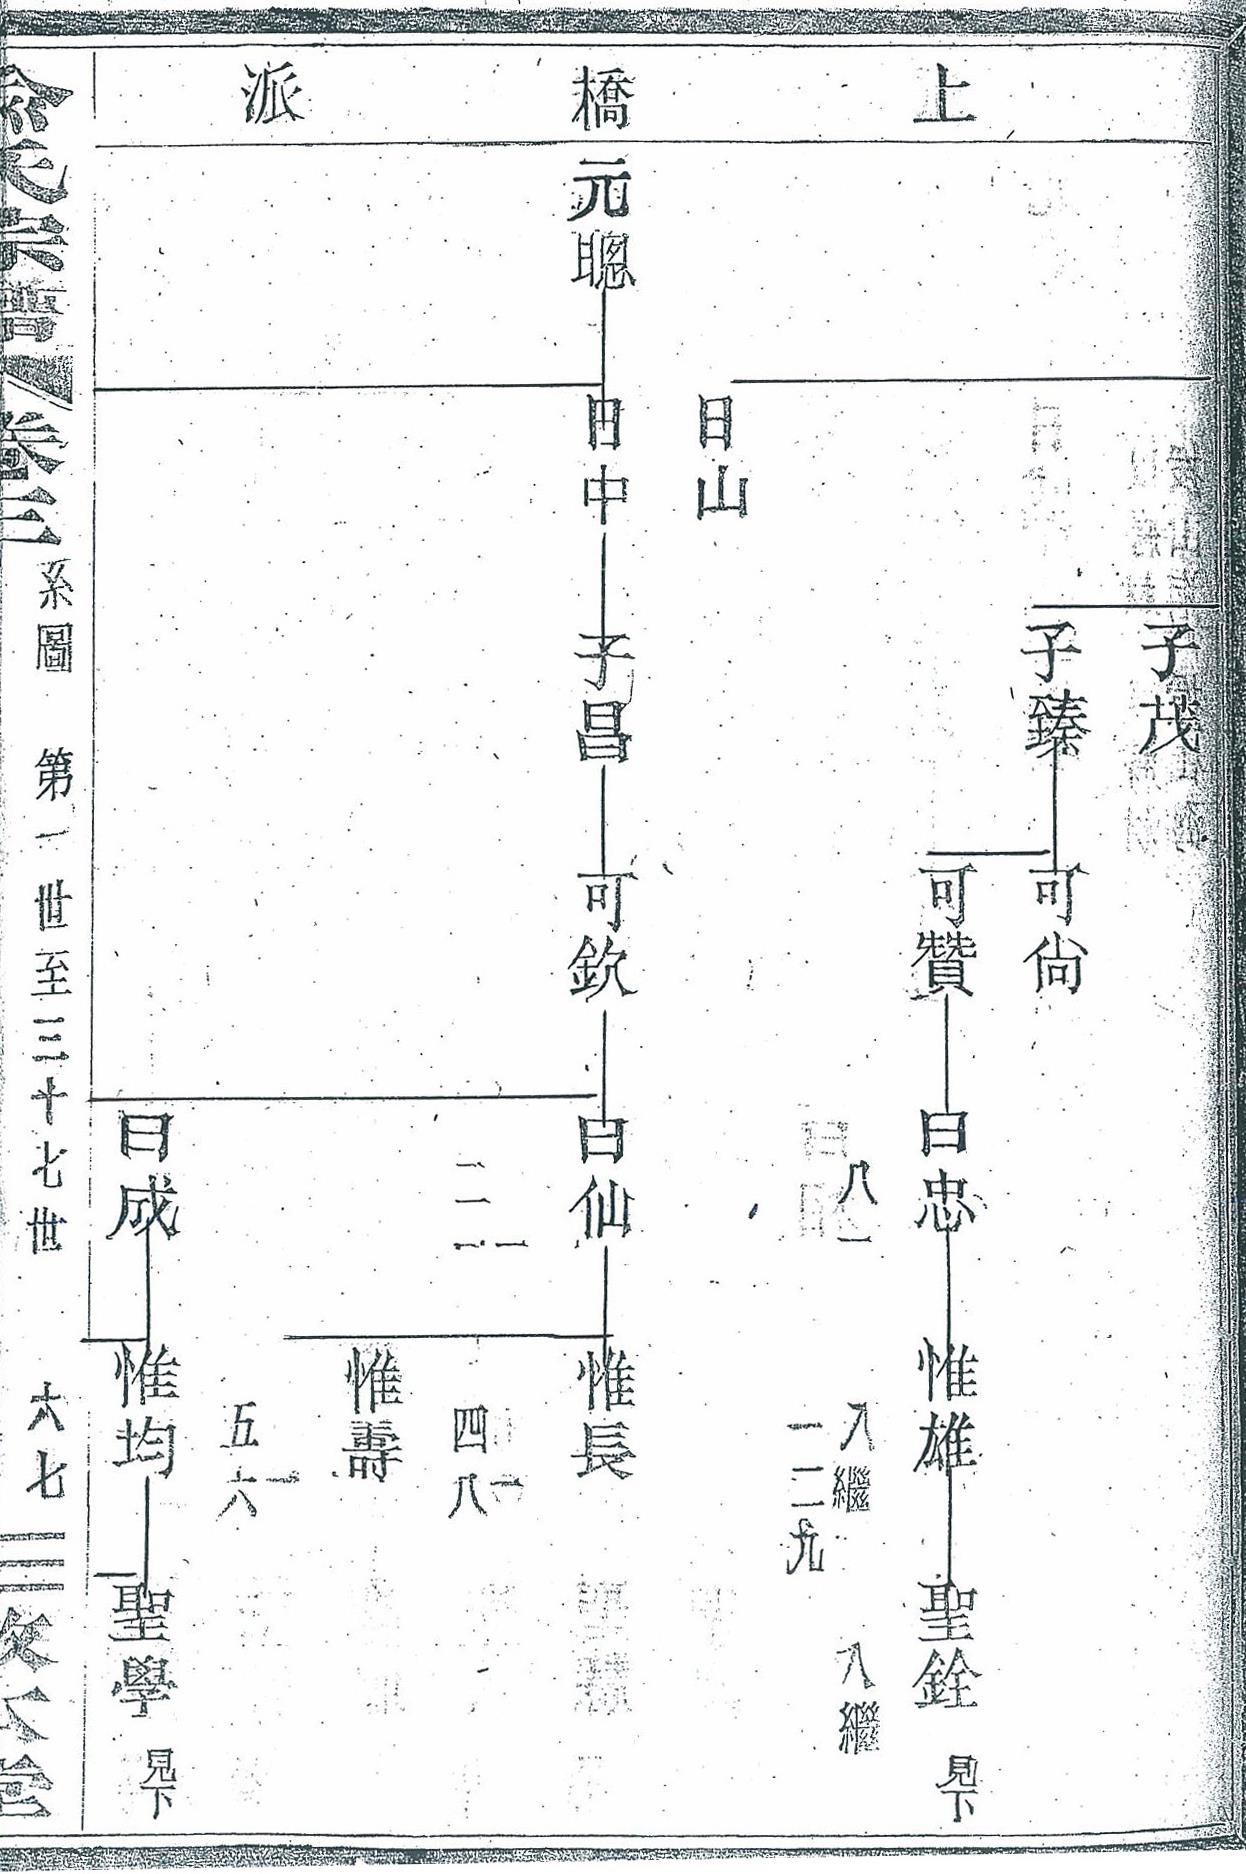 上橋派
子茂
子臻
可尙
可贊
曰忠
惟雄
聖銓
見下
八一
八繼
一二九
八繼
日山
元聰
日中
子昌
可欽
曰仙
惟長
四八一
惟壽
五六一
曰成
惟均
聖學
見下
俞氏宗譜
卷三
系圖
第一世至三十七世
六七